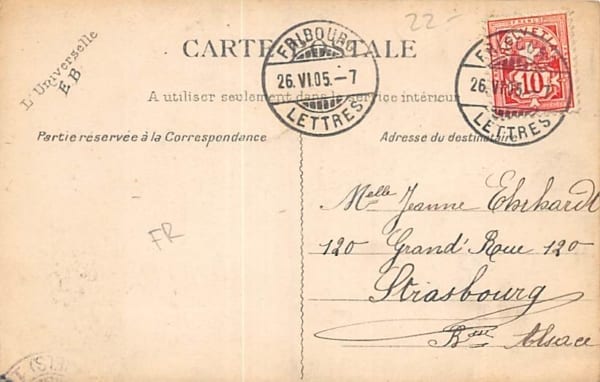 22-
L'Universelle
E.B
CARTE POSTALE
FRIBOURG
26.VI.05.-7
LETTRES
HELVETIA
FRANCO
10
FRIBOURG
26.VI.05.-7
LETTRES
A utiliser seulement dans le service intérieur
Partie réservée à la Correspondance
Adresse du destinataire
Melle Jeanne Ehrhardt
120 Grand' Roue 120
Strasbourg
Alsace
FR